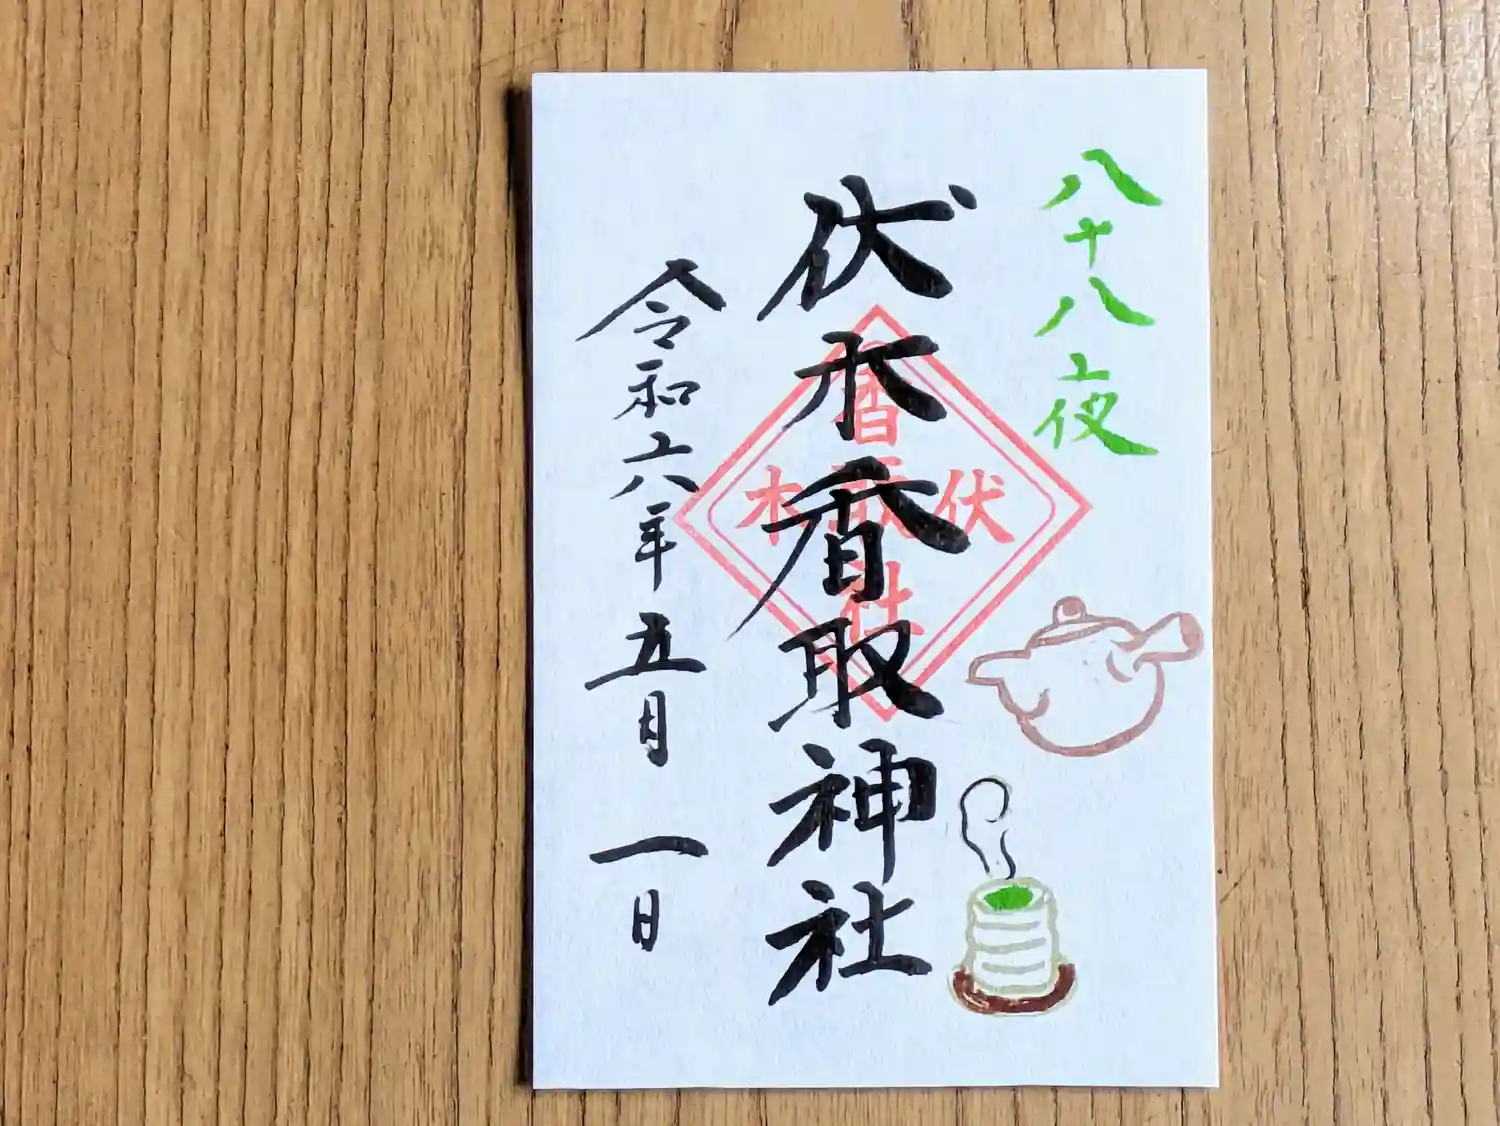 八十八夜
伏木香取神社
香取
伏木
社
令和六年五月一日